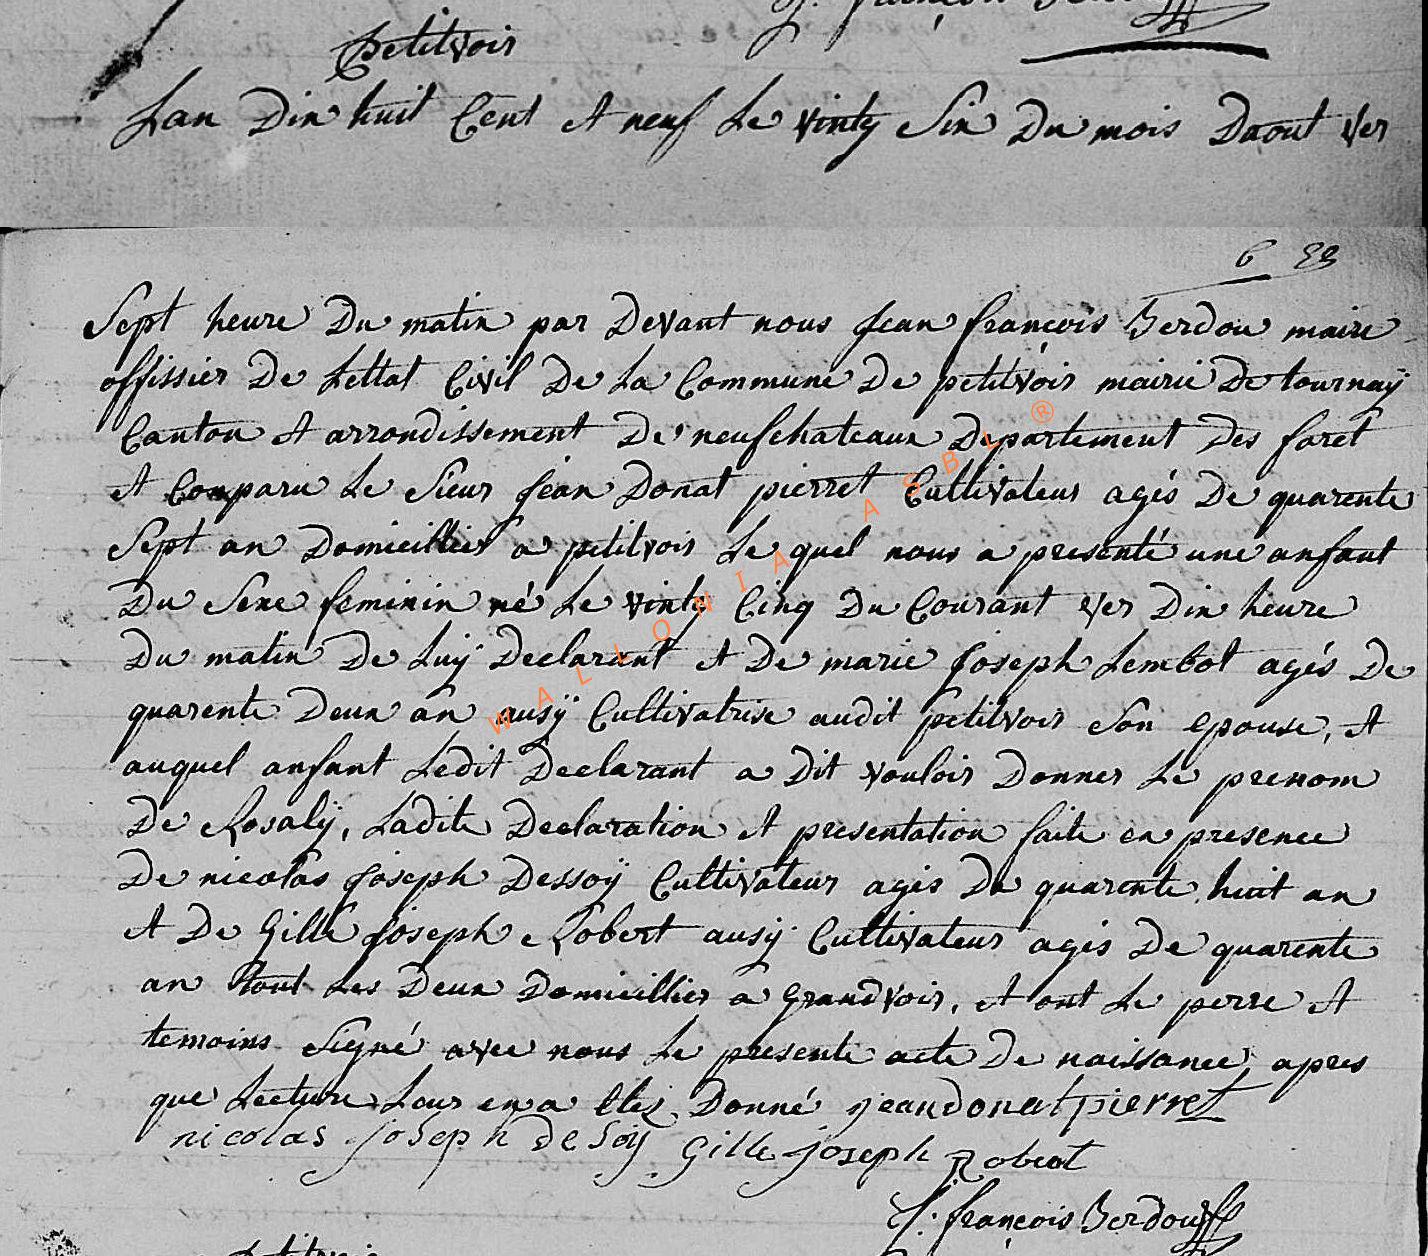 J. françois Berdou
petitvoir
Lan Dix huit Cent et neuf Le vinty Six Du mois Daout ver
6 
Sept heure Du matin par Devant nous Jean françois Berdou maire
offissier De Lettat Civil De La Commune De petitvoir mairie De tournaÿ
Canton et arrondissement De neufchateaux Departement Des foret
et Comparu Le Sieur Jean Donat pierret Cultivateur agés De quarente
Sept an Domicillier a petitvoir Le quel nous a presenté une anfant
Du Sexe feminin né Le vinty Cinq Du Courant ver Dix heure
Du matin De Luÿ Declarant et De marie Joseph Lembot agés De
quarente Deux an ausÿ Cultivatrise audit petitvoir Son epouse, et
auquel anfant Ledit Declarant a Dit vouloir Donner Le prenom
De Rosalÿ, Ladite Declaration et presentation faite en presence
De nicolas Joseph Dessoÿ Cultivateur agés De quarente huit an
et De Gille Joseph Robert ausÿ Cultivateur agés De quarente
an tout Les Deux Domicillier a grandvoir, et ont Le perre et
temoins Signé avec nous Le presente acte De naissance apres
que Lecture Leur en a etez Donné jean donat pierret
nicolas joseph de Soÿ Gille joseph Robert
J. françois Berdou
petitvoir
WALLONIA ASBL ®